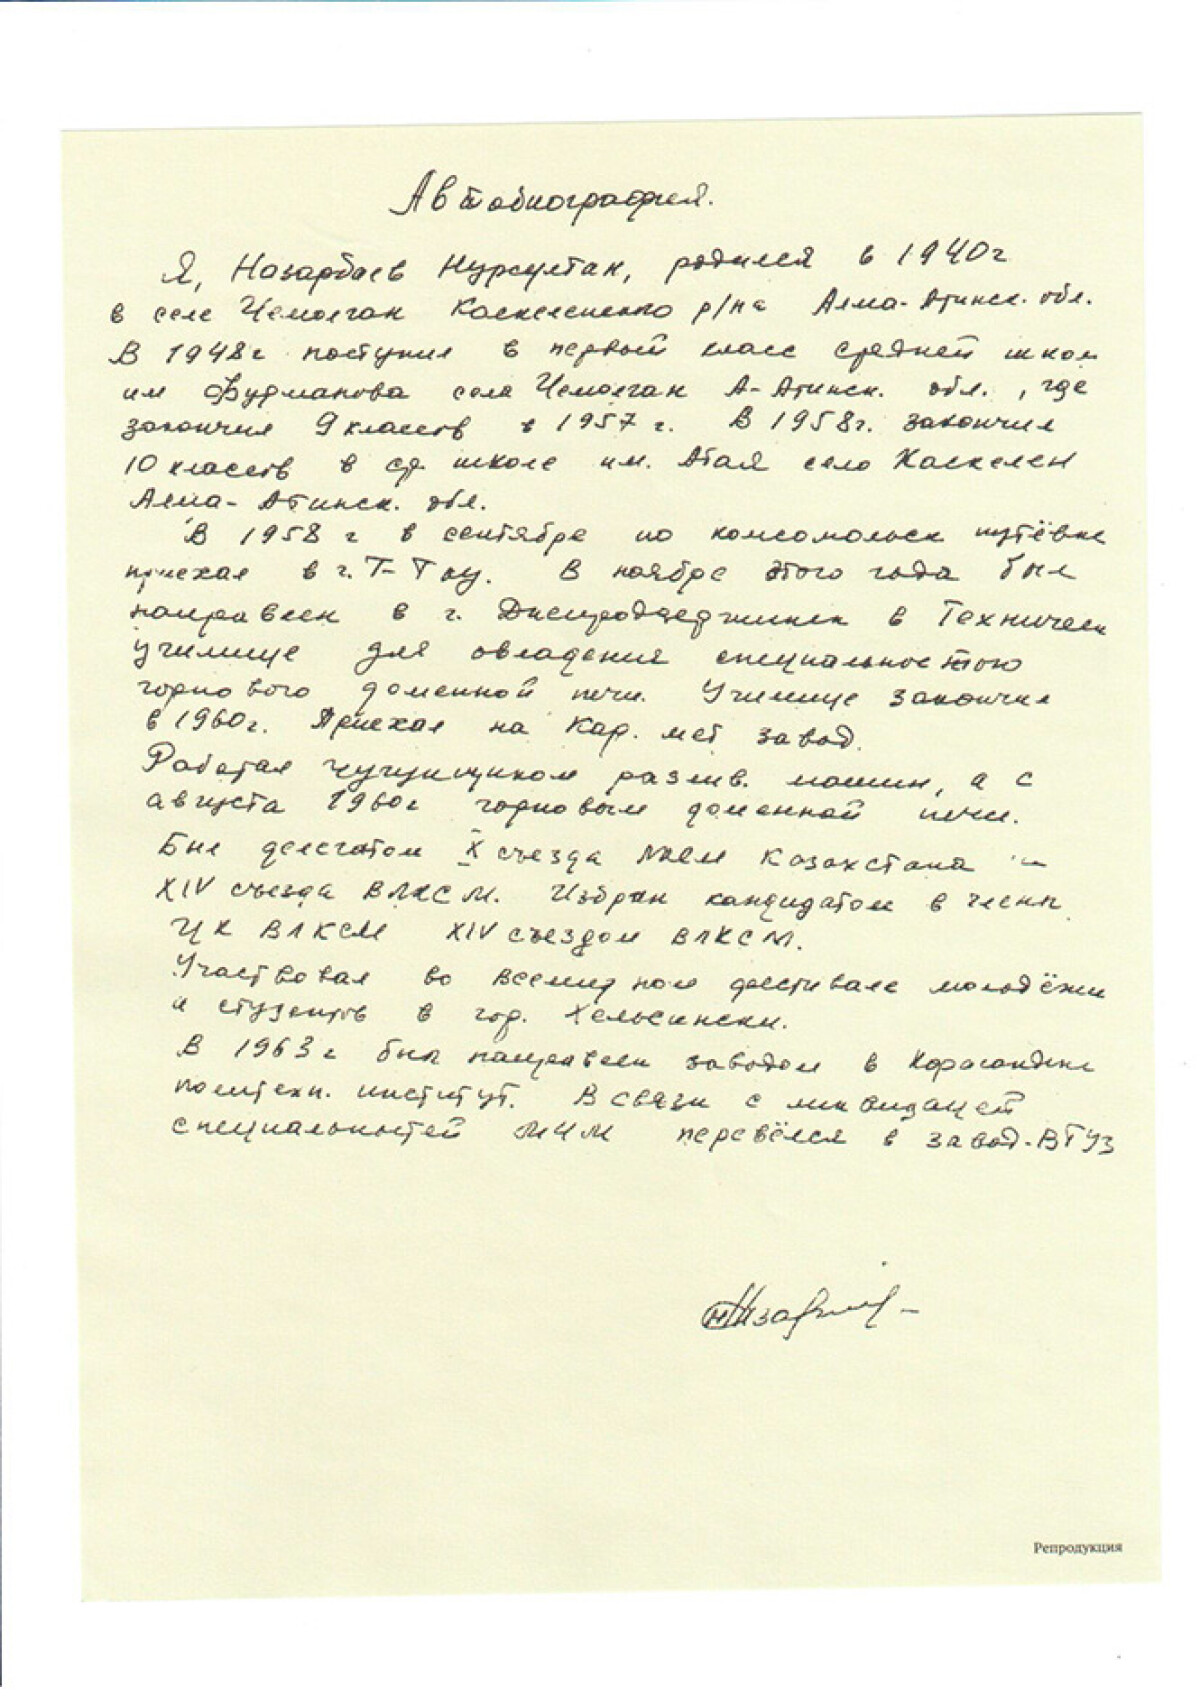 Автобиография.
Я, Назарбаев Нурсултан, родился в 1940г
в селе Чемолган Каскеленского р/на Алма-Атинск. обл.
В 1948г поступил в первый класс средней школ
им Фурманова села Чемолган А-Атинск. обл., где
закончил 9 классов в 1957 г. В 1958г. закончил
10 классов в ср. школе им. Абая село Каскелен
Алма-Атинск. обл.
В 1958 г в сентябре по комсомольск путёвке
приехал в г. Т-Тау. В ноябре этого года был
направлен в г. Днепродзержинск в Техническ
училище для овладения специальностью
горнового доменной печи. Училище закончил
в 1960г. Приехал на Кар. мет завод.
Работал чугунщиком разлив. машин, а с
августа 1960г горновым доменной печи.
Был делегатом X съезда ЛКСМ Казахстана и
XIV съезда ВЛКСМ. Избран кандидатом в члены
ЦК ВЛКСМ XIV съездом ВЛКСМ.
Участвовал во всемирном фестивале молодёжи
и студентов в гор. Хельсински.
В 1963г был направлен заводом в Карагандинс
политехн. институт. В связи с ликвидацией
специальностей МЧМ перевёлся в завод-ВТУЗ
Репродукция